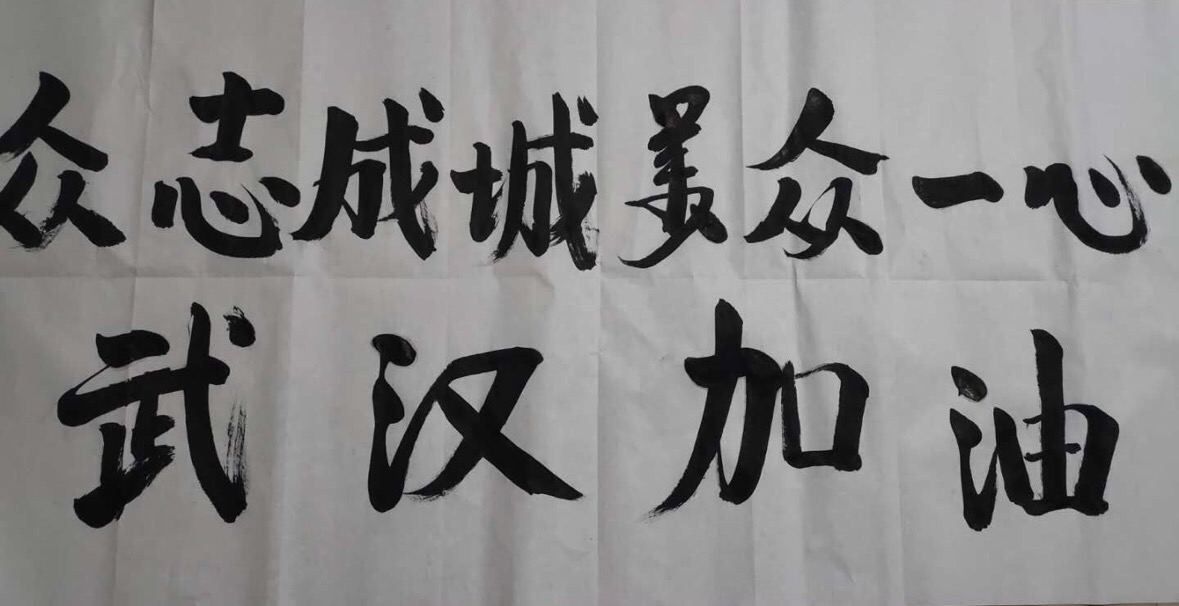 众志成城万众一心
武汉加油